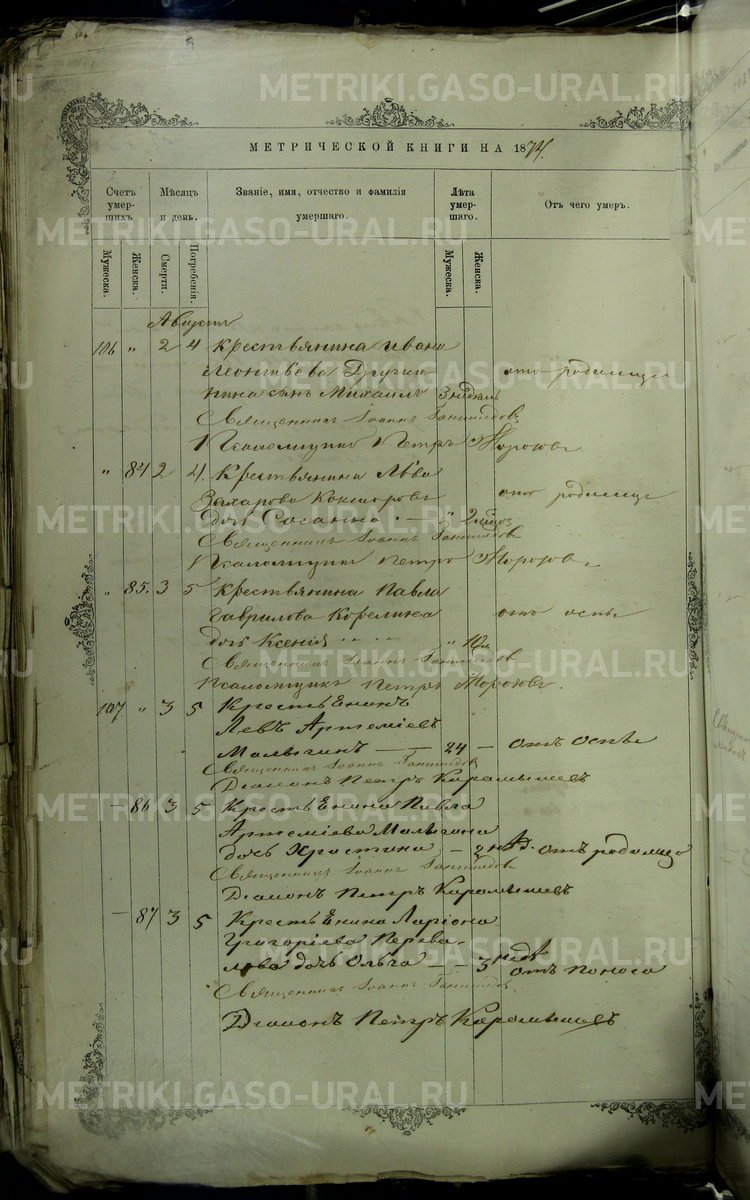 МЕТРИЧЕСКОЙ КНИГИ НА 1874.
Счетъ умершихъ. Мѣсяцъ и день. Званіе, имя, отчество и фамилія умершаго. Лѣта умершаго. Отъ чего умеръ.
Мужеска. Женска. Смерти. Погребенія. Мужеска. Женска.
Августъ
106 " 2 4 Крестьянина Ивана
Леонтьева отъ родимца
сынъ Михаилъ 3 недѣли
Священникъ Іоаннъ
Псаломщикъ Петръ Морозовъ.
" 84 2 4. Крестьянина Льва
Захарова отъ родимца
дочь Сосанна " 2
Священникъ Іоаннъ
Псаломщикъ Петръ Морозовъ
" 85. 3 5 Крестьянина Павла
Гаврилова Корелина отъ оспы
дочь Ксенія "
Священникъ Іоаннъ
Псаломщикъ Петръ Морозовъ.
107 " 3 5 Крестьѣнинъ
Левъ Артеміевъ
Малыгинъ — — 24 — Отъ Оспы
Священникъ Іоаннъ
Діаконъ Петръ Карамышевъ
— 86 3 5 Крестьѣнина Павла
Артеміева Малыгина
дочь Христина — 2 нѣд. отъ родимца
Священникъ Іоаннъ
Діаконъ Петръ Карамышевъ
— 87 3 5 Крестьѣнина Ларіона
Григоріева Перева-
лова дочь Ольга — — 3 недѣ отъ поноса
Священникъ Іоаннъ
Діаконъ Петръ Карамышевъ
METRIKI.GASO-URAL.RU